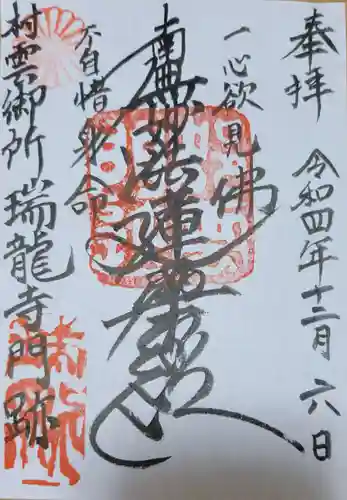 奉拝
令和四年十二月六日
一心欲見佛
南無妙法蓮華経
不自惜身命
村雲御所瑞龍寺門跡